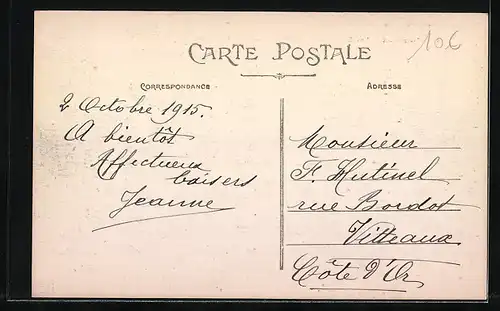 106
CARTE POSTALE
CORRESPONDANCE
ADRESSE
2 Octobre 1915.
A bientôt
Affectueux
baisers
Jeanne
Monsieur
F. Hutinel
rue Bordot
Vitteaux
Côte d'Or